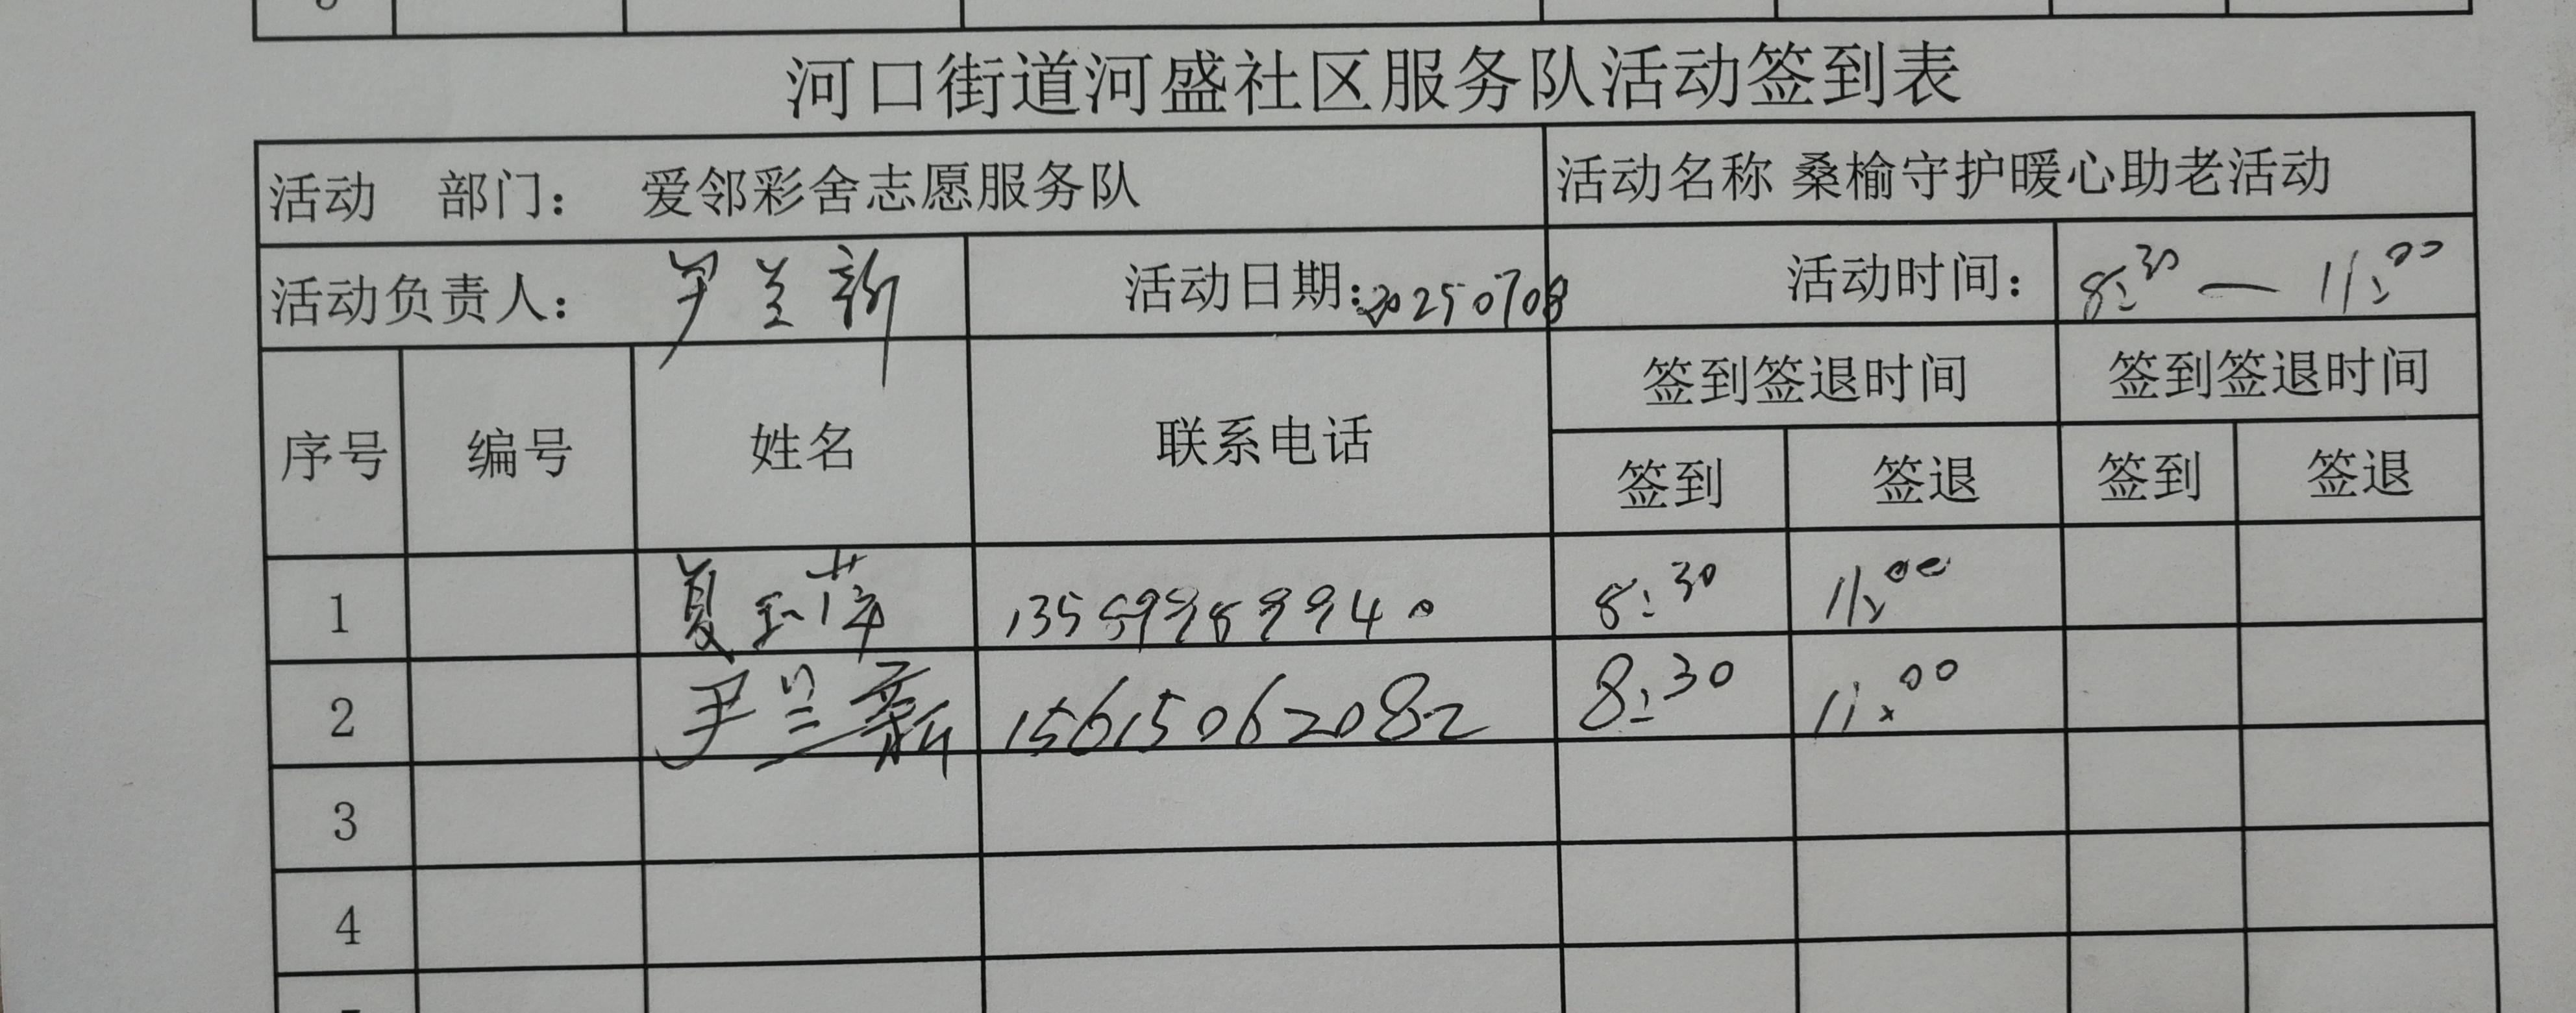 河口街道河盛社区服务队活动签到表
活动 部门： 爱邻彩舍志愿服务队 活动名称 桑榆守护暖心助老活动
活动负责人： 尹兰新 活动日期：20250708 活动时间： 8:30 — 11:00
签到签退时间 签到签退时间
序号 编号 姓名 联系电话
签到 签退 签到 签退
1 夏 8:30 11:00
2 尹兰新 15615062082 8:30 11:00
3
4